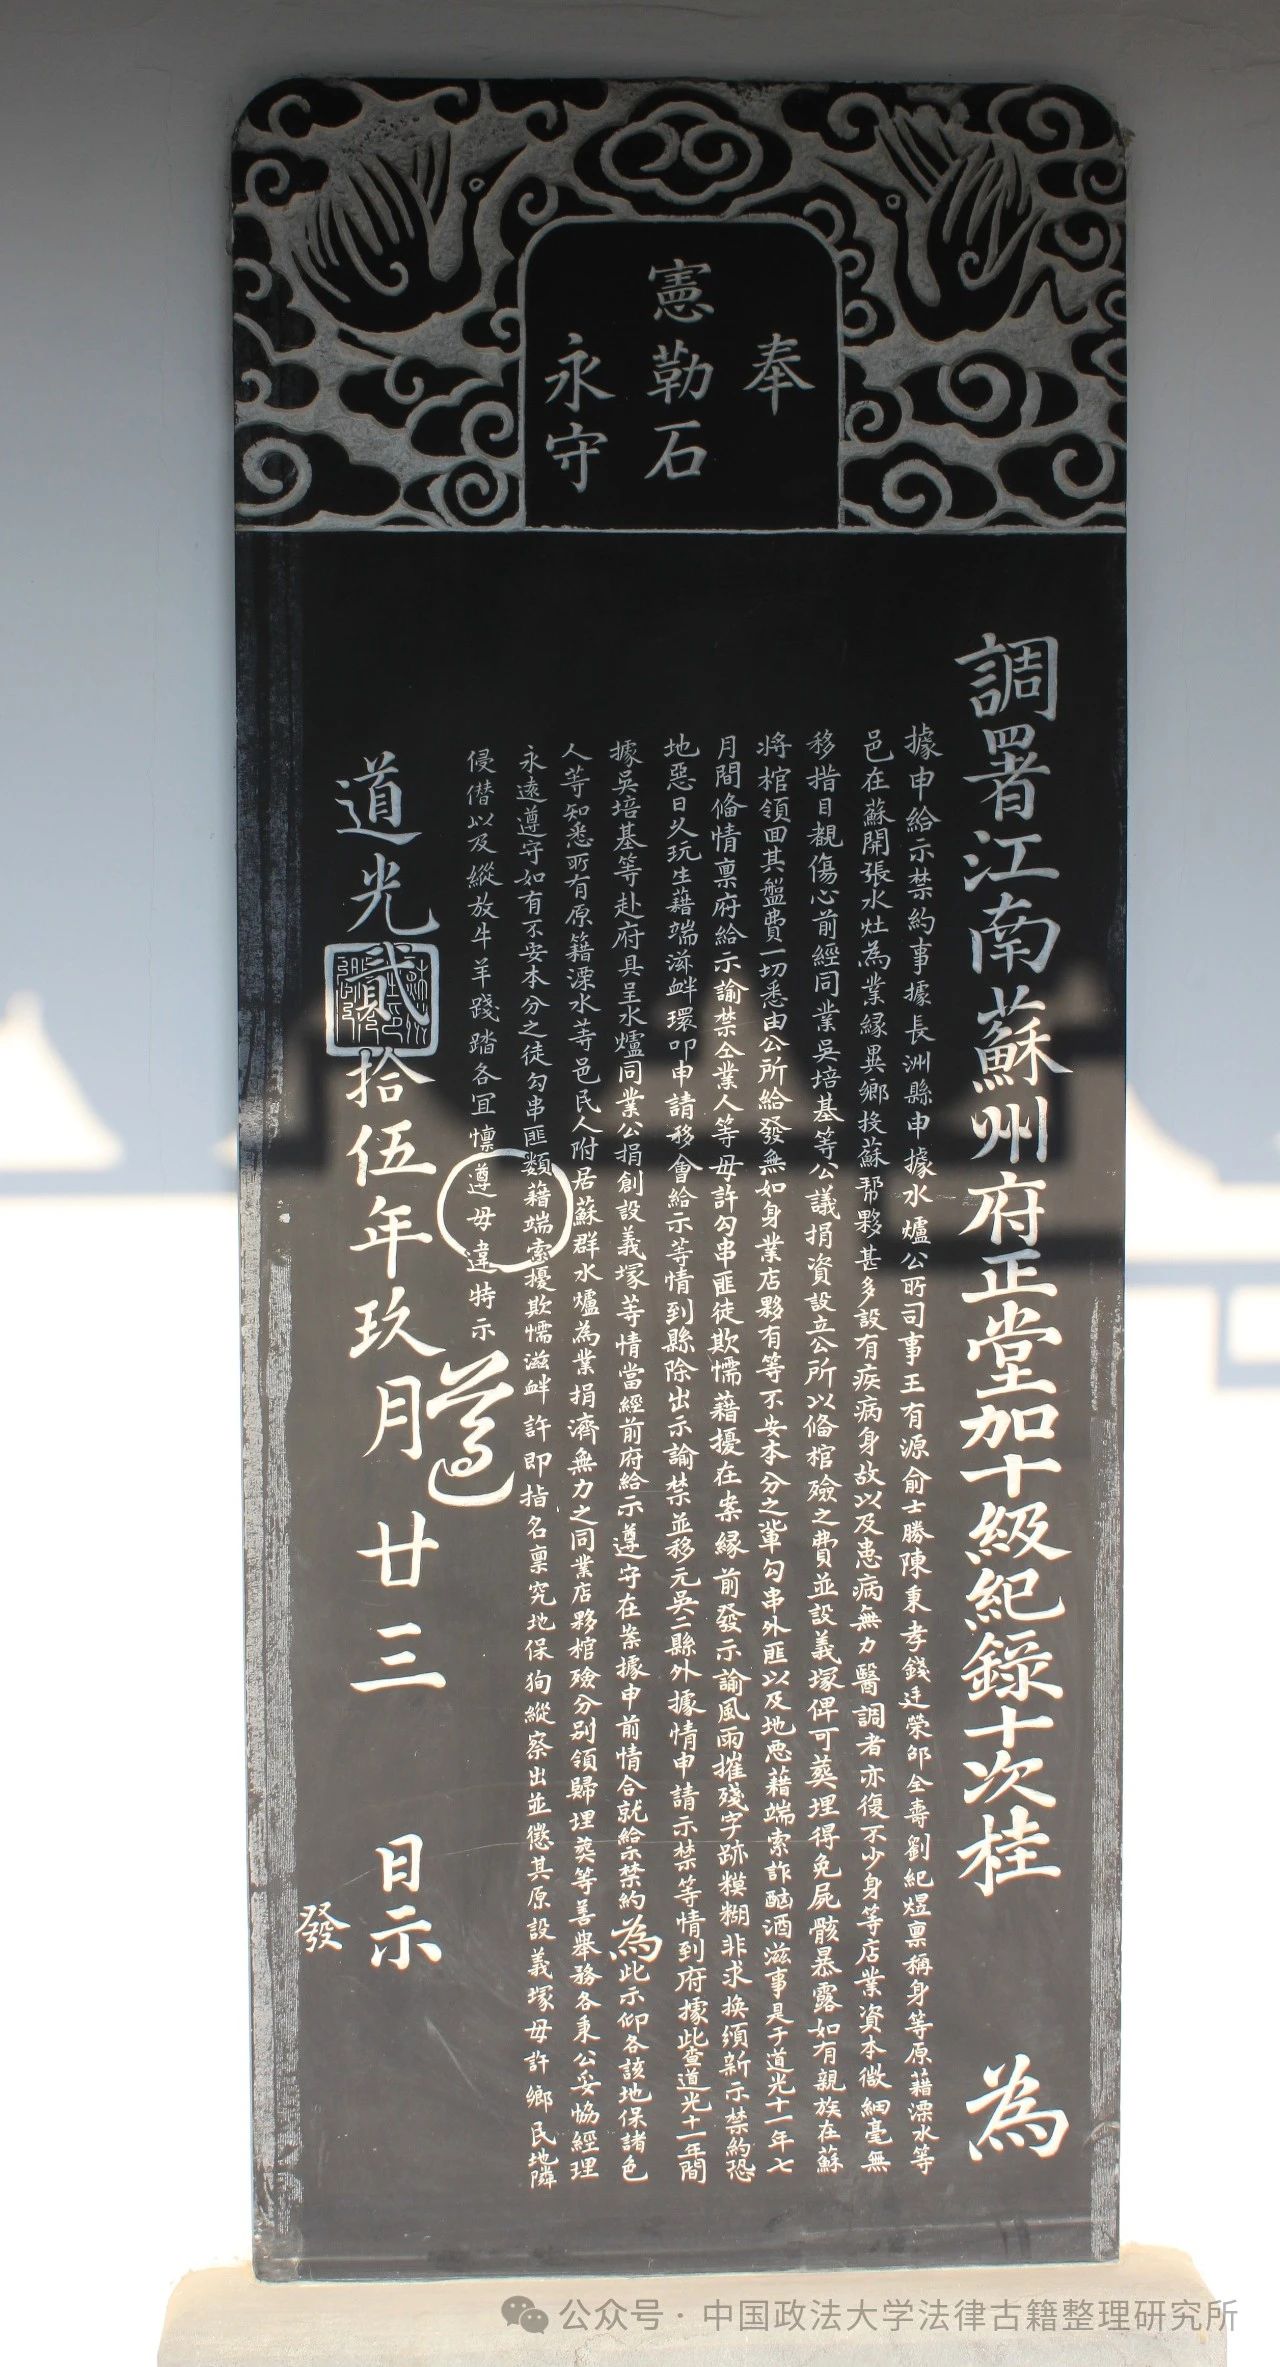 奉
憲勒石
永守
調署江南蘇州府正堂加十級紀錄十次桂 為
據申給示禁約事據長洲縣申據水爐公所司事王有源俞士勝陳秉孝錢廷榮邱全壽劉紀煜禀稱身等原藉溧水等
邑在蘇開張水灶為業緣異鄉投蘇帮夥甚多設有疾病身故以及患病無力醫調者亦復不少身等店業資本微細毫無
移措目覩傷心前經同業吳培基等公議捐資設立公所以俻棺殮之費並設義塚俾可葬埋得免屍骸暴露如有親族在蘇
將棺領回其盤費一切悉由公所給發無如身業店夥有等不安本分之輩勾串外匪以及地悪藉端索詐酗酒滋事是于道光十一年七
月間俻情禀府給示諭禁仝業人等毋許勾串匪徒欺懦藉擾在案緣前發示諭風雨摧殘字跡糢糊非求換須新示禁約恐
地惡日久玩生藉端滋衅環叩申請移會給示等情到縣除出示諭禁並移元吳二縣外據情申請示禁等情到府據此查道光十一年間
據吳培基等赴府具呈水爐同業公捐創設義塚等情當經前府給示遵守在案據申前情合就給示禁約為此示仰各該地保諸色
人等知悉所有原籍溧水等邑民人附居蘇群水爐為業捐濟無力之同業店夥棺殮分别領歸埋葬等善舉務各秉公妥協經理
永遠遵守如有不安本分之徒勾串匪類藉端索擾欺懦滋衅許即指名禀究地保狥縱察出並懲其原設義塚毋許鄉民地隣
侵僭以及縱放牛羊踐踏各宜懔遵毋違特示
遵
道光貳拾伍年玖月廿三 日示
發
公众号 · 中国政法大学法律古籍整理研究所